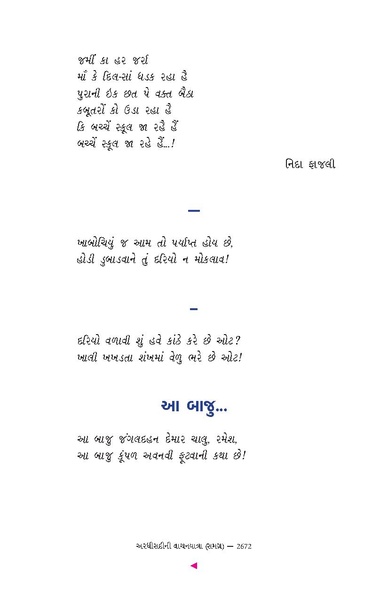 જમીં કા હર જર્રા
માઁ કે દિલ-સાં ધડક રહા હૈ
પુરાની ઇક છત પે વક્ત બૈઠા
કબૂતરોં કો ઉડા રહા હૈ
કિ બચ્ચેં સ્કૂલ જા રહૈ હૈં
બચ્ચેં સ્કૂલ જા રહે હૈં...!
નિદા ફાજલી
—
ખાબોચિયું જ આમ તો પર્યાપ્ત હોય છે,
હોડી ડુબાડવાને તું દરિયો ન મોકલાવ!
–
દરિયો વળાવી શું હવે કાંઠે કરે છે ઓટ?
ખાલી ખખડતા શંખમાં વેળુ ભરે છે ઓટ!
આ બાજુ...
આ બાજુ જંગલદહન દેમાર ચાલુ, રમેશ,
આ બાજુ કૂંપળ અવનવી ફૂટવાની કથા છે!
અરધીસદીની વાચનયાત્રા (સમગ્ર) — 2672
◄